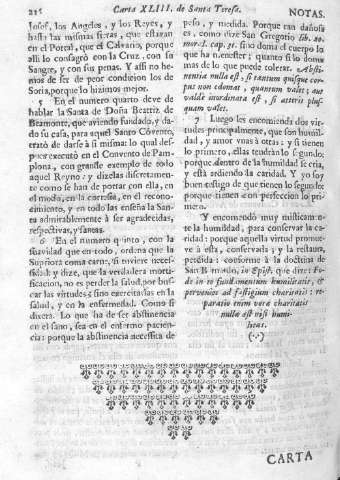 216 Carta XLIII. de Santa Teresa. NOTAS.
Josef, los Angeles, y los Reyes, y
hasta las mismas fieras, que estaran
en el Portal, que el Calvario, porque
alli lo consagrò con la Cruz, con su
Sangre, y con sus penas. Y assi no he-
mos de ser de peor condicion los de
Soria, porque lo hizimos mejor.
5 En el numero quarto deve de
hablar la Santa de Doña Beatriz de
Beamonte, que aviendo fundado, y da-
do su casa, para aquel Santo Cõvento,
tratò de darse à sì misma: lo qual des-
pues executò en el Convento de Pam-
plona, con grande exemplo de todo
aquel Reyno: y dizelas discretamen-
te como se han de portar con ella, en
el modo, en la cortesia, en el recono-
cimiento, y en todas les enseña la San-
ta admirablemente à ser agradecidas,
respectivas, y santas.
6 En el numero quinto, con la
suavidad que en todo, ordena que la
Supriora coma carne, si tuviere neces-
sidad: y dize, que la verdadera morti-
ficacion, no es perder la salud, por bus-
car las virtudes; sino exercitarlas en la
salud, y en la enfermedad. Como si
dixera. Lo que ha de ser abstinencia
en el sano, sea en el enfermo pacien-
cia: porque la abstinencia necessita de
peso, y medida. Porque tan dañosa
es, como dize San Gregorio lib. 20.
moral. cap. 31. sino doma el cuerpo lo
que ha menester; y quanto si lo doma
mas de lo que puede tolerar. Absti-
nentia nulla est, si tantum quisque cor-
pus non edomat, quantum valet; aut
valdè inordinata est, si atterit plus-
quam valet.
7 Luego les encomienda dos vir-
tudes principalmente, que son humil-
dad, y amor unas à otras: y si tienen
lo primero, ellas tendràn lo segundo;
porque dentro de la humildad se cria,
y està ardiendo la caridad. Y yo soy
buen testigo de que tienen lo segundo;
porque tienen con perfeccion lo pri-
mero.
Y encomendò muy misticamen-
te la humildad, para conservar la ca-
ridad: porque aquella virtud promue-
ve à esta, conservada; y la restaura,
perdida: conforme à la doctrina de
San Bernardo, in Epist. que dize: Fo-
de in te fundamentum humilitatis, &
pervenies ad fastigium charitatis: re-
paratio enim vera charitatis
nulla est nisi humi-
litas.
(·.·)
CARTA